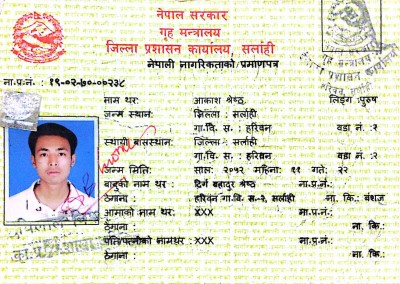 नेपाल सरकार
गृह मन्त्रालय
जिल्ला प्रशासन कार्यालय, सर्लाही
नेपाली नागरिकताको प्रमाणपत्र
ना.प्र.नं. : १९-०२-७०-००२३८
नाम थर: आकाश श्रेष्ठ लिङ्ग: पुरुष
जन्म स्थान: जिल्ला : सर्लाही
गा.वि.स. : हरिवन वडा नं. : २
स्थायी बासस्थान: जिल्ला: सर्लाही
गा.वि.स. : हरिवन वडा नं. : २
जन्म मिति: साल: २०५२ महिना: ११ गते: २२
बाबुको नाम थर : दिर्ग बहादुर श्रेष्ठ ना.प्र.नं.:
ठेगाना: हरिवन गा.वि.स.-२, सर्लाही ना. कि.: वंशज
आमाको नाम थर: XXX ना.प्र.नं.:
ठेगाना: ना. कि.:
पति/पत्नीको नामथर: XXX ना.प्र.नं.:
ठेगाना: ना. कि.: